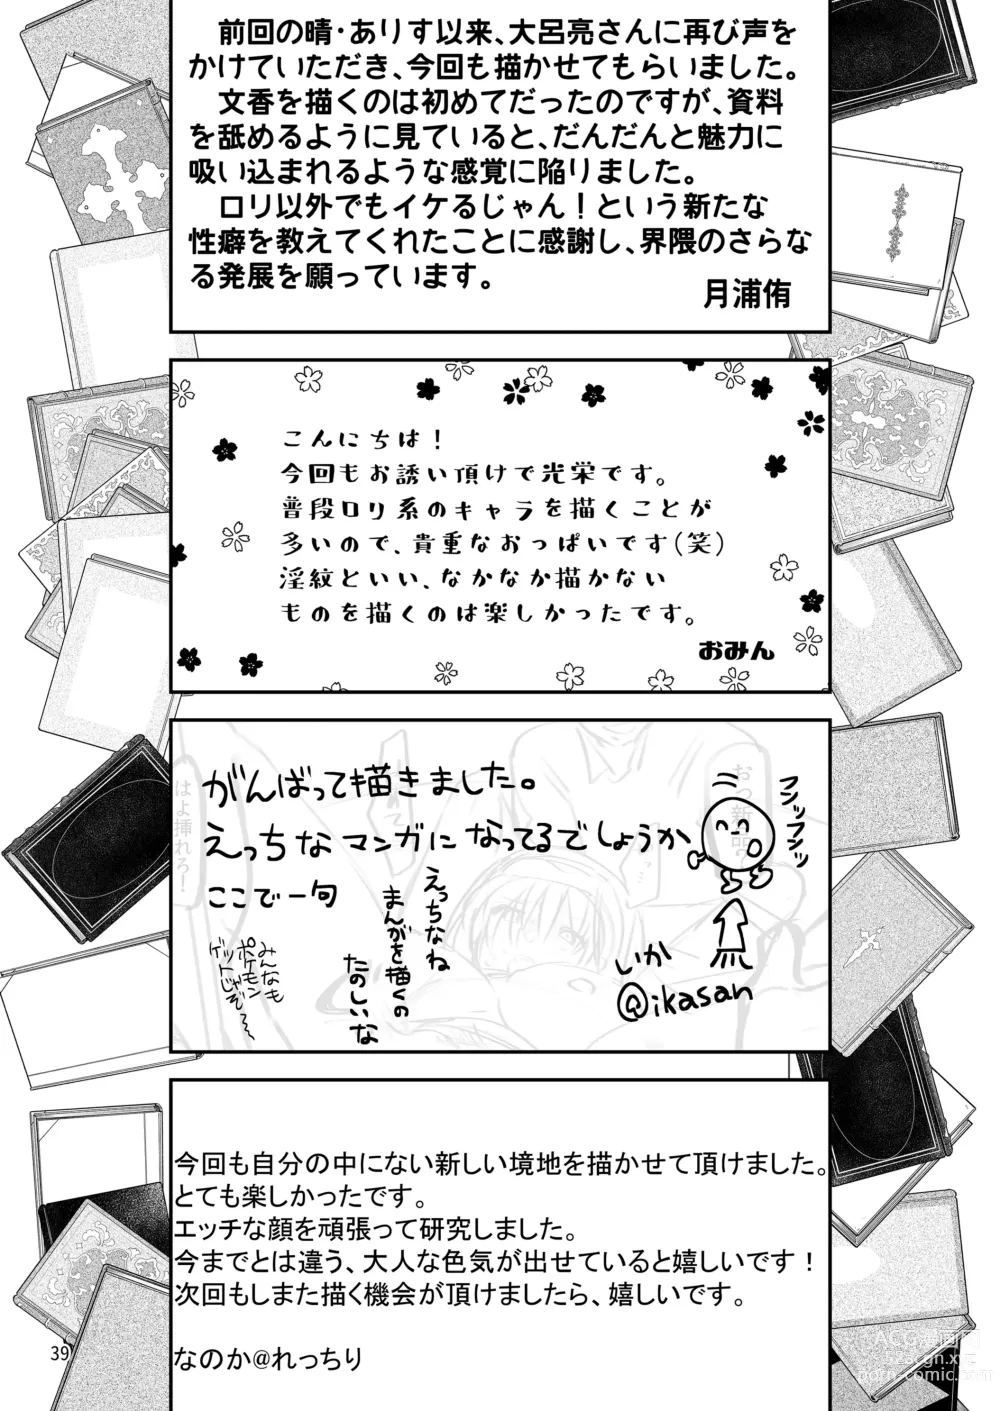 前回の晴・ありす以来、大呂亮さんに再び声を
かけていただき、今回も描かせてもらいました。
文香を描くのは初めてだったのですが、資料
を舐めるように見ていると、だんだんと魅力に
吸い込まれるような感覚に陥りました。
ロリ以外でもイケるじゃん！という新たな
性癖を教えてくれたことに感謝し、界隈のさらな
る発展を願っています。
月浦侑
こんにちは！
今回もお誘い頂けで光栄です。
普段ロリ系のキャラを描くことが
多いので、貴重なおっぱいです(笑)
淫紋といい、なかなか描かない
ものを描くのは楽しかったです。
おみん
がんばって描きました。
えっちなマンガになってるでしょうか
フンッフンッ
ここで一句
えっちなね
まんがを描くの
たのしいな
みんなも
ポケモン
ゲットじゃぞ～
いか
@ikasan
お、新品？
はよ挿れろ！
今回も自分の中にない新しい境地を描かせて頂けました。
とても楽しかったです。
エッチな顔を頑張って研究しました。
今までとは違う、大人な色気が出せていると嬉しいです！
次回もしまた描く機会が頂けましたら、嬉しいです。
なのか@れっちり
39